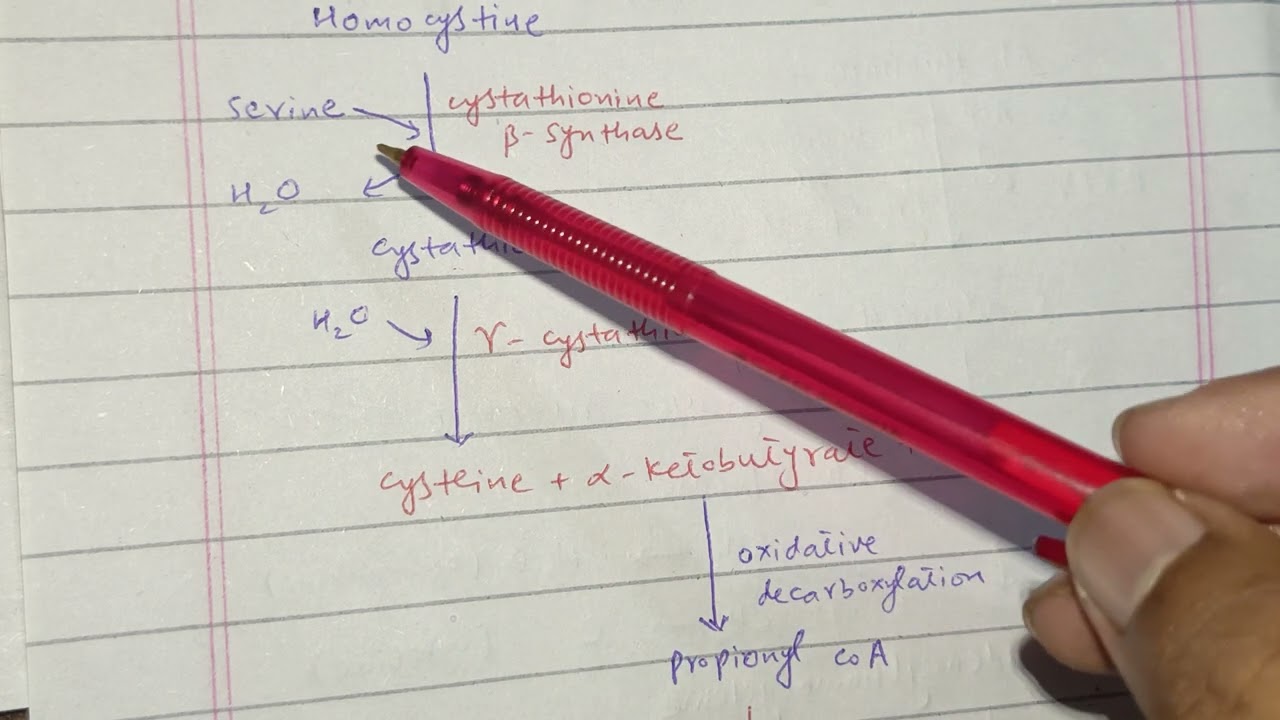 Homocystine
Serine cystathionine
β- synthase
H₂O
H₂O γ-
cysteine + α-ketobutyrate
oxidative
decarboxylation
propionyl coA